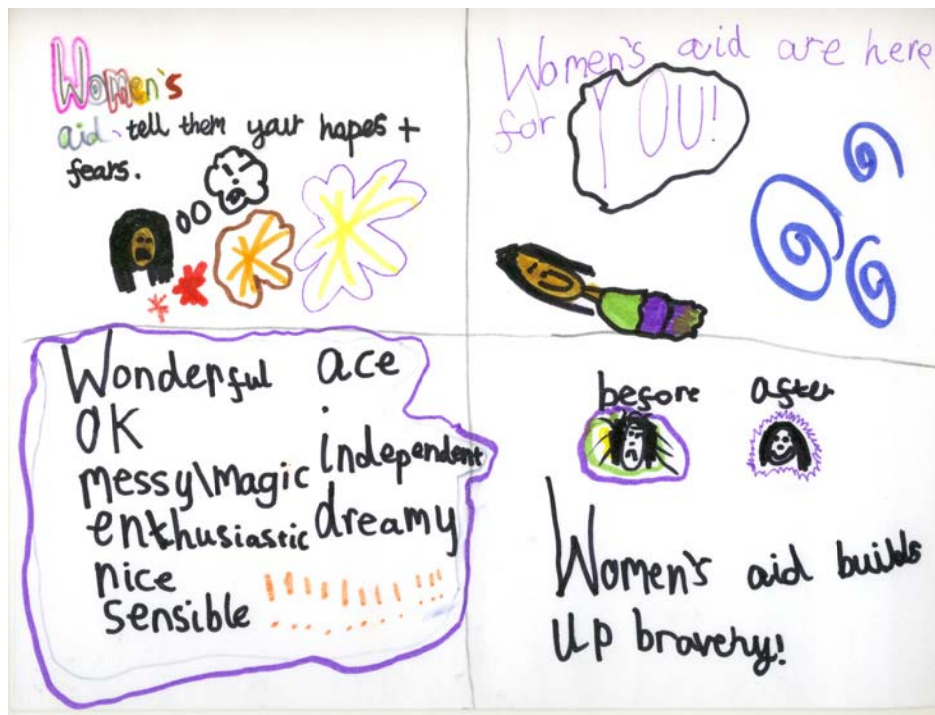 Women's
aid. tell them your hopes +
fears.
Women's aid are here
for YOU!
Wonderful
OK
messy\Magic
enthusiastic
nice
sensible
ace
independent
dreamy
!!!!!!!!!!!
before
after
Women's aid builds
up bravery!